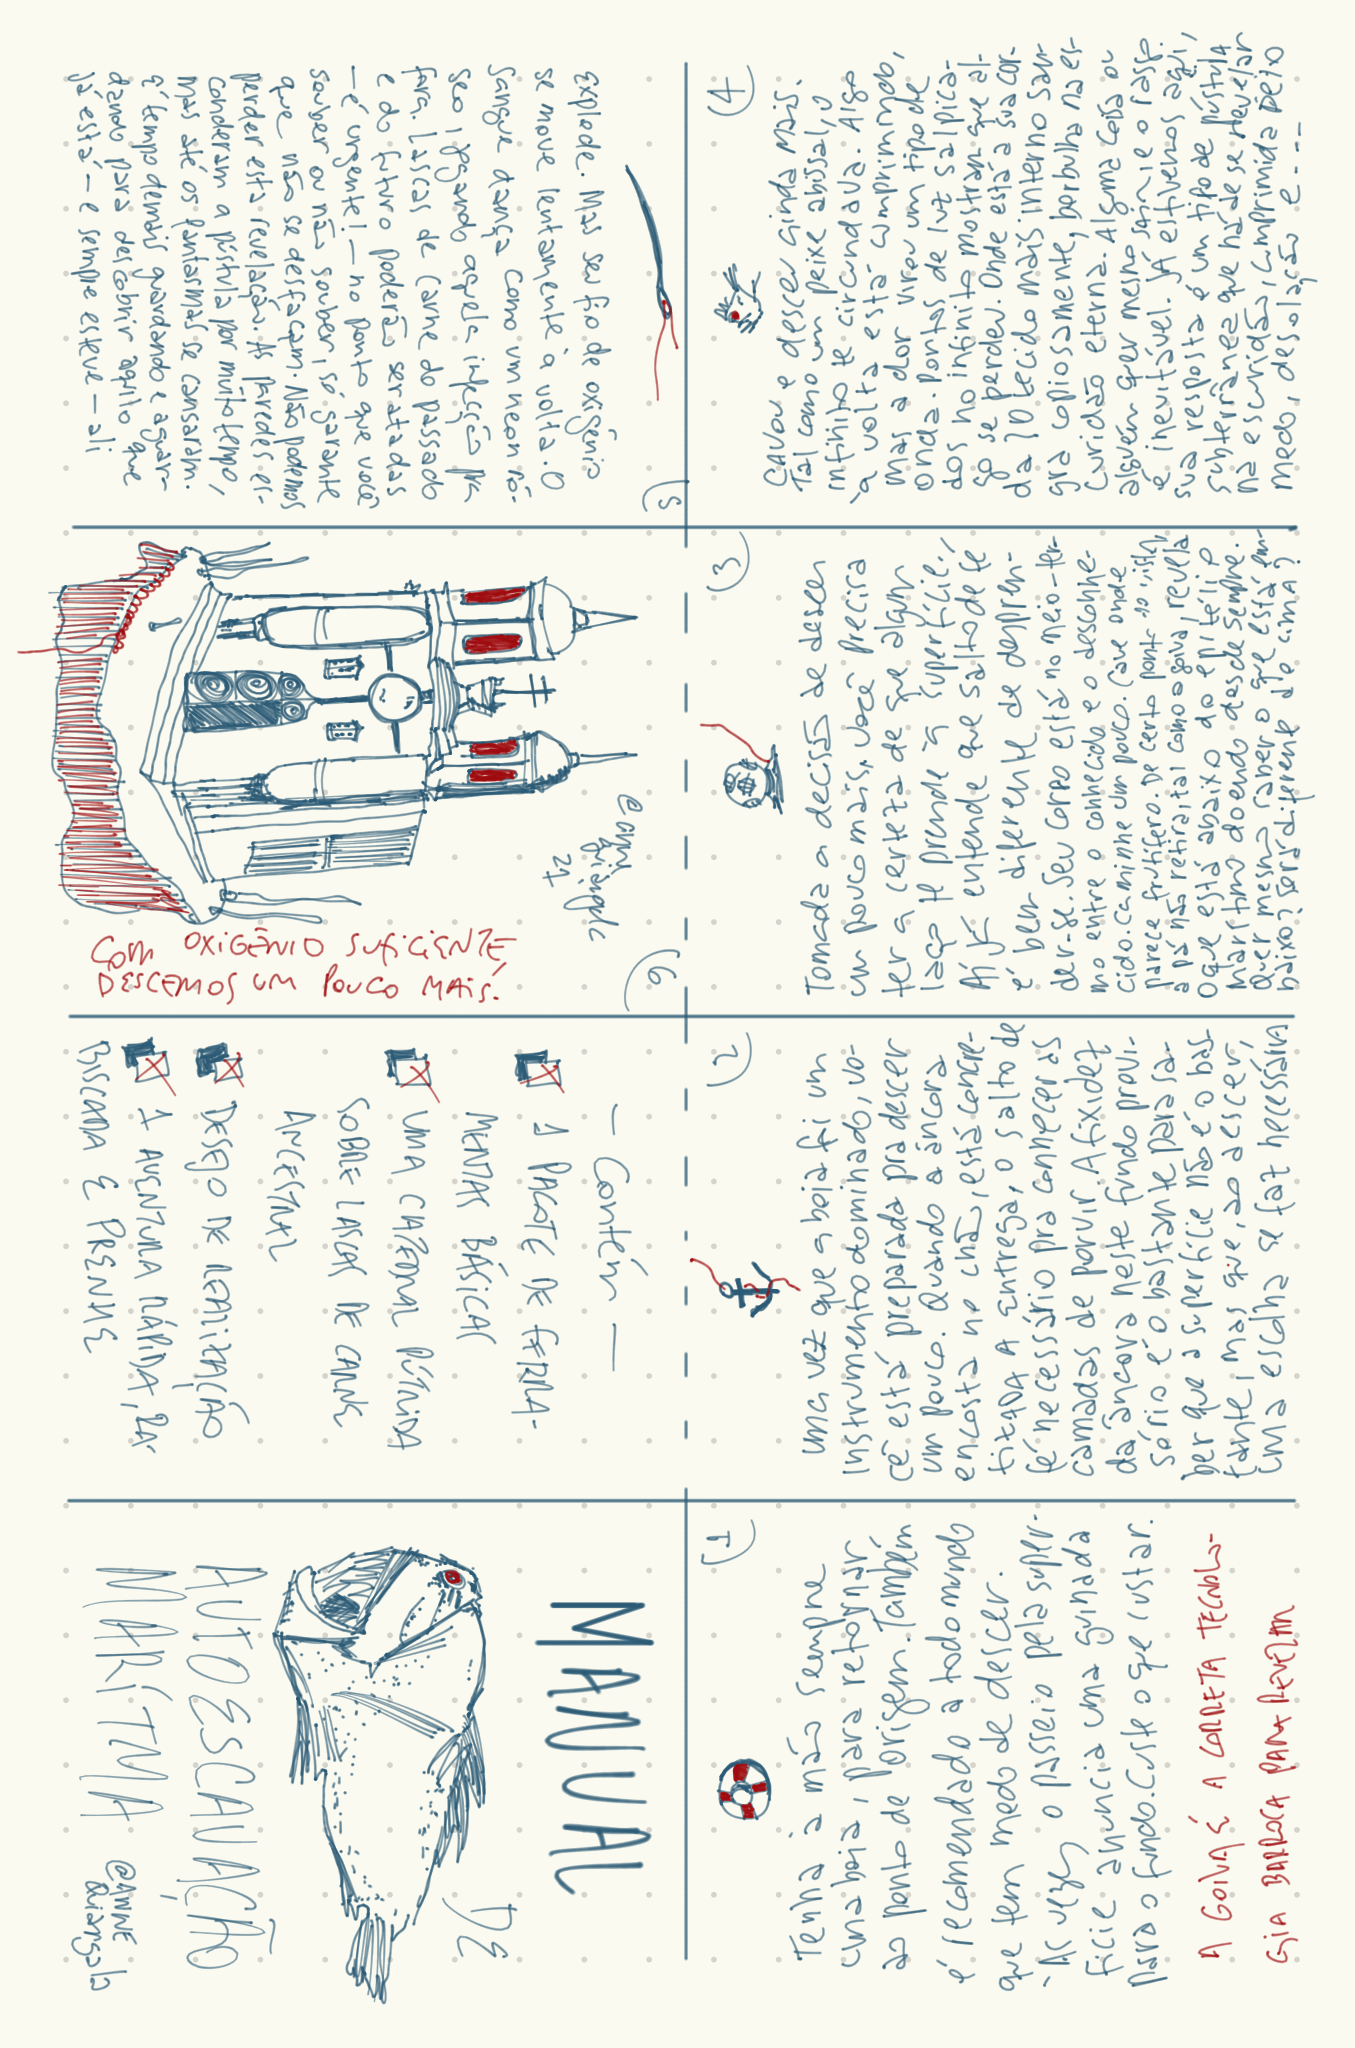 MANUAL
DE
AUTOESCAVAÇÃO
MARÍTIMA
@ANNE
Quiangala
— Contém —
1 PACOTE DE FERRA-
MENTAS BÁSICAS
UMA CATEDRAL PÚTRIDA
SOBRE LASCAS DE CARNE
ANCESTRAL
DESEJO DE REALIZAÇÃO
1 AVENTURA RÁPIDA, RA-
BISCADA E PRENHE
1)
Tenha à mão sempre
uma boia, para retornar
ao ponto de origem. Também
é recomendado a todo mundo
que tem medo de descer.
Às vezes, o passeio pela super-
fície anuncia uma guinada
para o fundo. Custe o que custar.
A GOIVA É A CORRETA TECNOLO-
GIA BARROCA PARA REVELAR
2)
Uma vez que a boia foi um
instrumento dominado, vo-
cê está preparada pra descer
um pouco. Quando a âncora
encosta no chão, está concre-
tizada a entrega, o salto de
fé necessário pra conhecer as
camadas de porvir. A fixidez
da âncora neste fundo provi-
sório é o bastante para sa-
ber que a superfície não é o bas-
tante, mas que, ao descer,
uma escolha se faz necessária
3)
Tomada a decisão de descer
um pouco mais, você precisa
ter a certeza de que algum
laço te prende à superfície,
Aí já entende que salto de fé
é bem diferente de despren-
der-se. Seu corpo está no meio-ter-
mo entre o conhecido e o desconhe-
cido. Caminhe um pouco. Cave onde
parece frutífero. De certo ponto to vista,
a pá não retira, tal como a goiva, revela
o que está abaixo do epitélio
marítimo doendo desde sempre.
Quer mesmo saber o que está em-
baixo? Será diferente de cima?
4)
Cavou e desceu ainda mais.
Tal como um peixe abissal, o
infinito te circundava. Algo
à volta está comprimindo,
mas a dor virou um tipo de
onda. Pontos de luz salpica-
dos no infinito mostram que al-
go se perdeu. Onde está a sua cor-
da? O tecido mais interno san-
gra copiosamente, borbulha na es-
curidão eterna. Alguma coisa ou
alguém quer mesmo sair e o rasgo
é inevitável. Já estivemos aqui,
sua resposta é um tipo de pústula
subterrânea que há de se revelar
na escuridão, comprimida pelo
medo, desolação e....
5)
Explode. Mas seu fio de oxigênio
se move lentamente à volta. O
sangue dança como um neon ró-
seo, pegando aquela infecção pra
fora. Lascas de carne do passado
e do futuro poderão ser atadas
— é urgente! — no ponto que você
souber ou não souber, só garante
que não se desfaçam. Não podemos
perder esta revelação. As paredes es-
conderam a pústula por muito tempo,
mas até os fantasmas se cansaram.
É tempo demais guardando e aguar-
dando para descobrir aquilo que
já está — e sempre esteve — ali
6)
COM OXIGÊNIO SUFICIENTE,
DESCEMOS UM POUCO MAIS.
@anne
quiangala
21